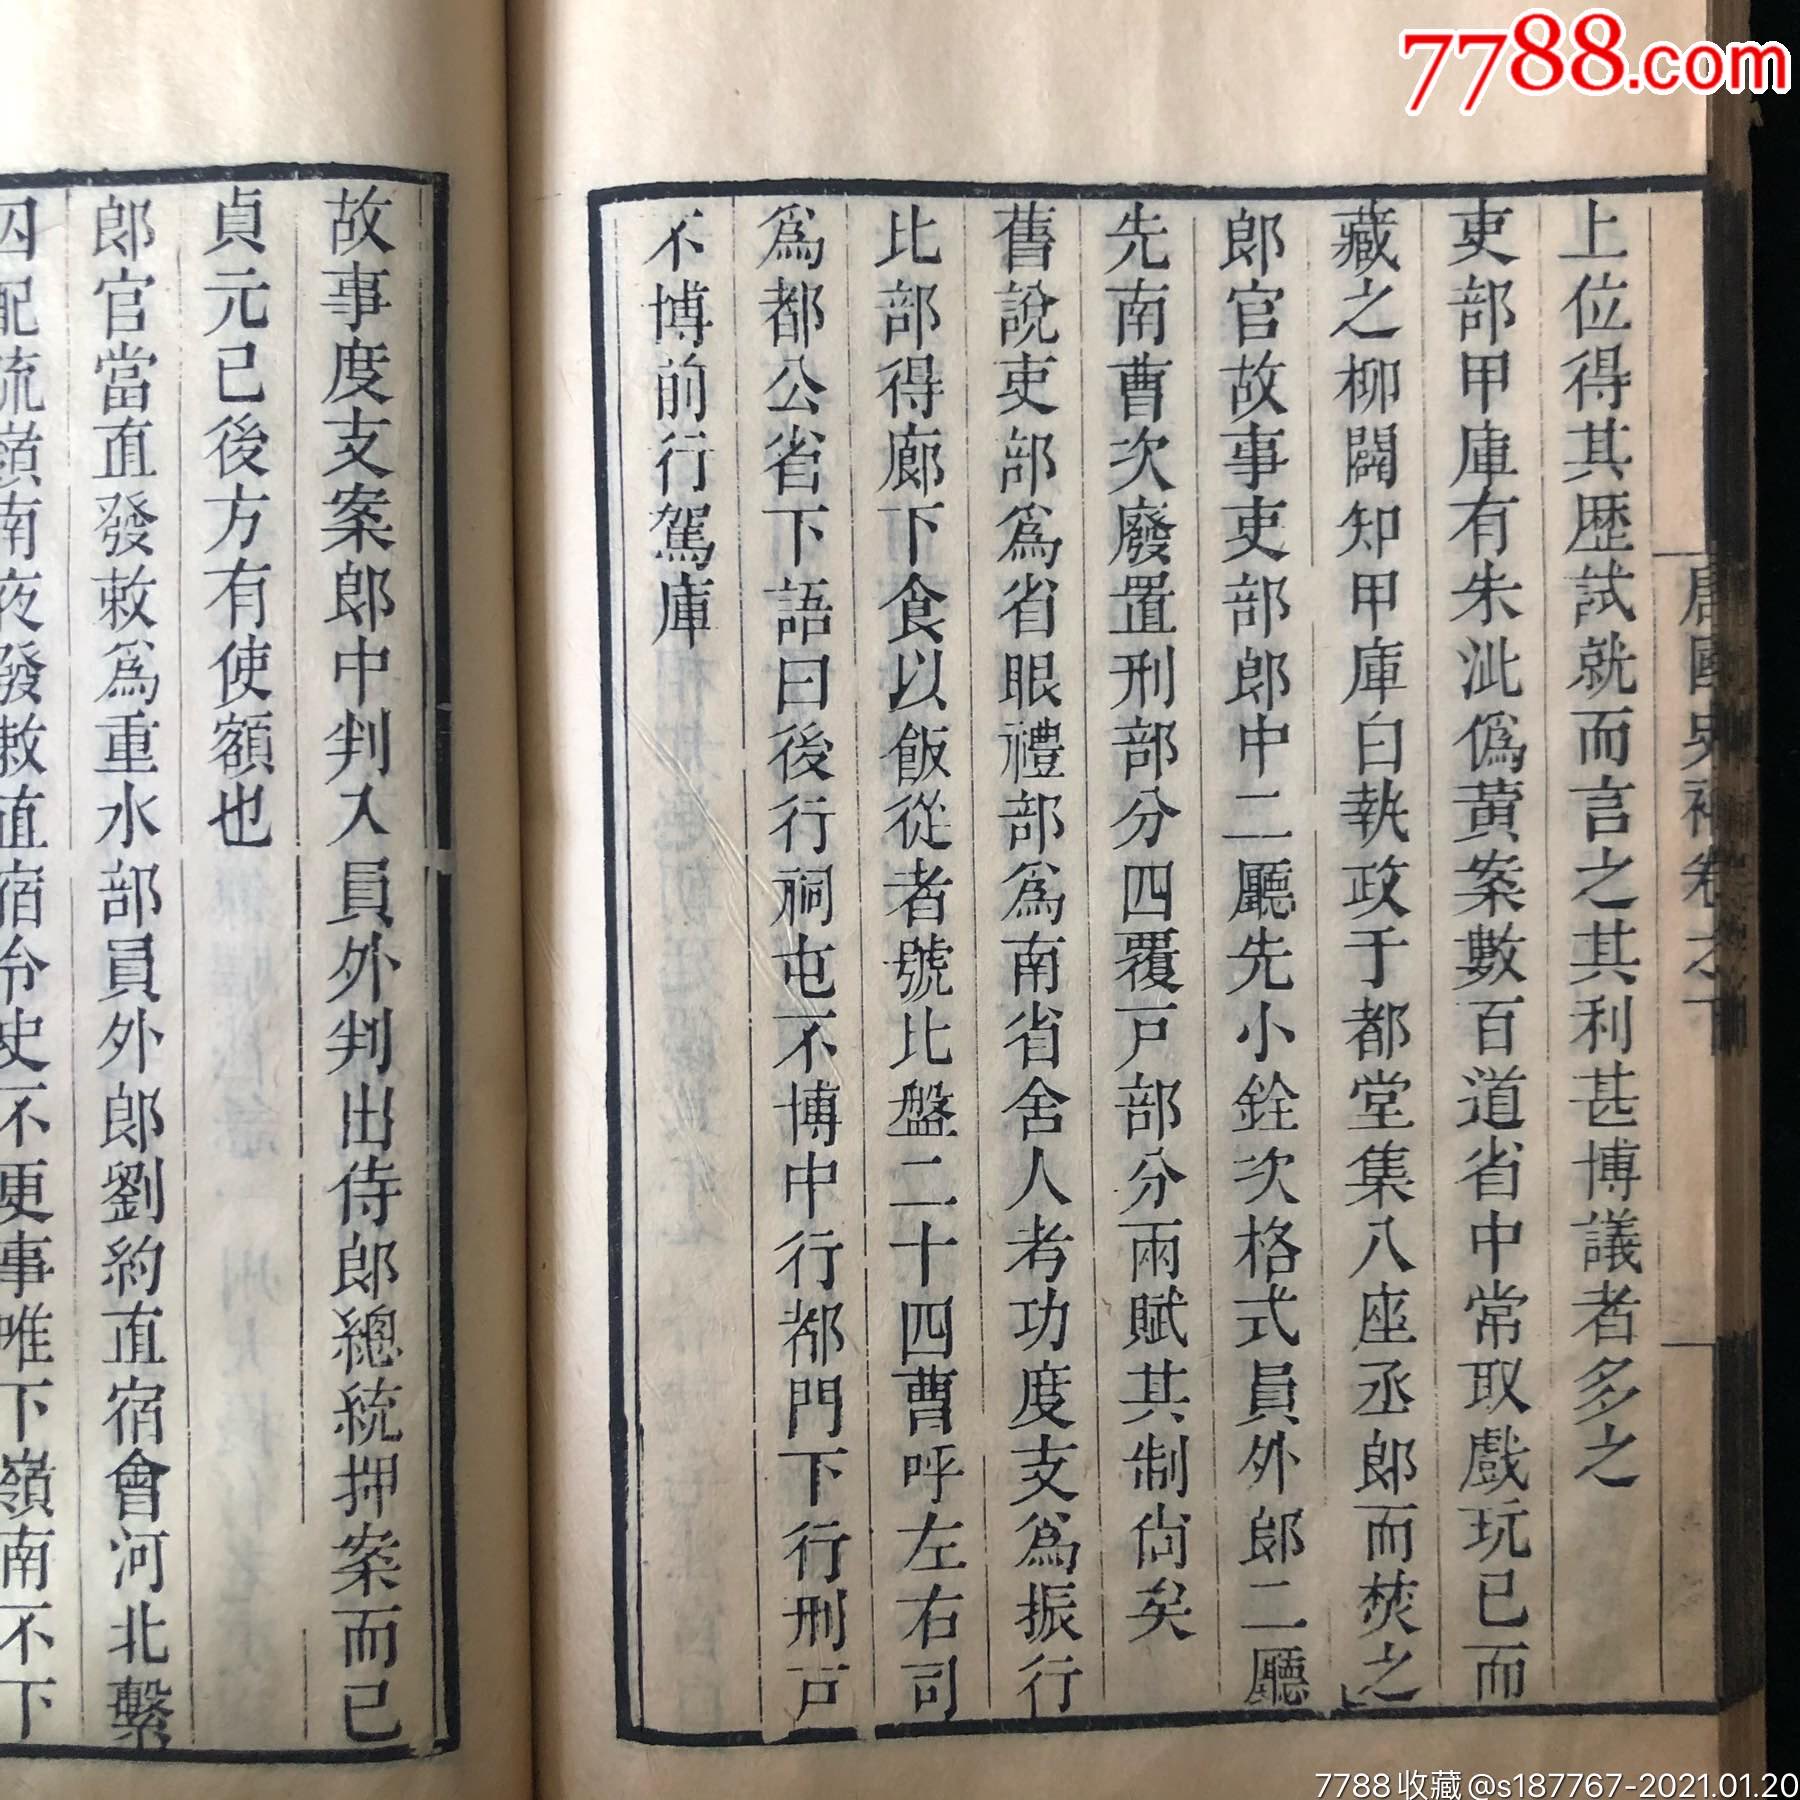 7788.com
唐國史補卷之下
上位得其歴試就而言之其利甚博議者多之
吏部甲庫有朱泚僞黄案數百道省中常取戲玩已而
藏之柳闢知甲庫白執政于都堂集八座丞郎而焚之
郎官故事吏部郎中二廳先小銓次格式員外郎二廳
先南曹次廢置刑部分四覆戸部分兩賦其制尚矣
舊說吏部爲省眼禮部爲南省舍人考功度支爲振行
比部得廊下食以飯從者號比盤二十四曹呼左右司
爲都公省下語曰後行祠屯不博中行都門下行刑戸
不博前行駕庫
故事度支案郎中判入員外判出侍郎總統押案而已
貞元已後方有使額也
郎官當直發敕爲重水部員外郎劉約直宿會河北繫
囚配流嶺南夜發敕直宿令史不更事唯下嶺南不下
7788收藏@s187767-2021.01.20